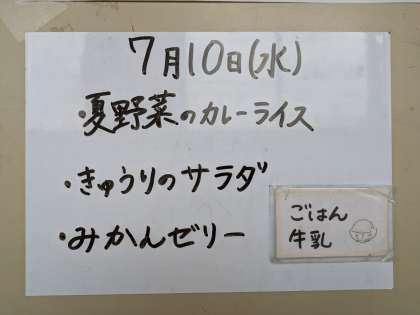 7月10日(水)
・夏野菜のカレーライス
・きゅうりのサラダ
・みかんゼリー
ごはん
牛乳